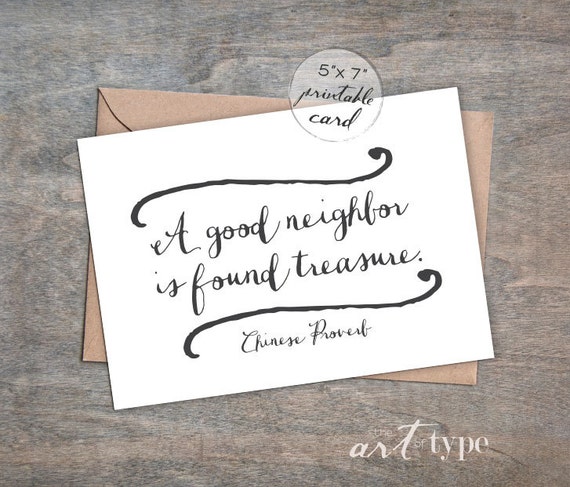 5"x 7"
printable
card
A good neighbor
is found treasure.
Chinese Proverb
the
art of type